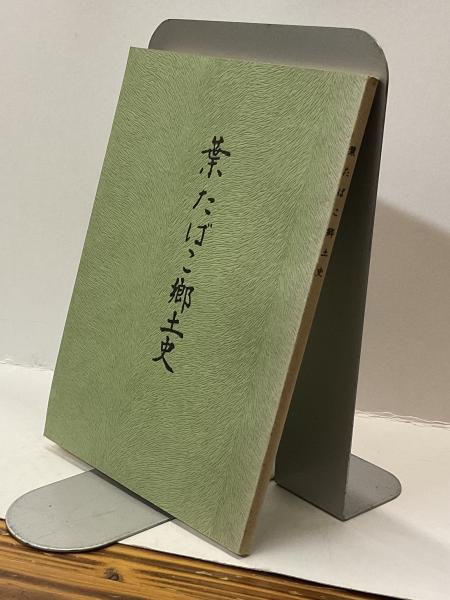 葉たばこ郷土史
葉たばこ郷土史